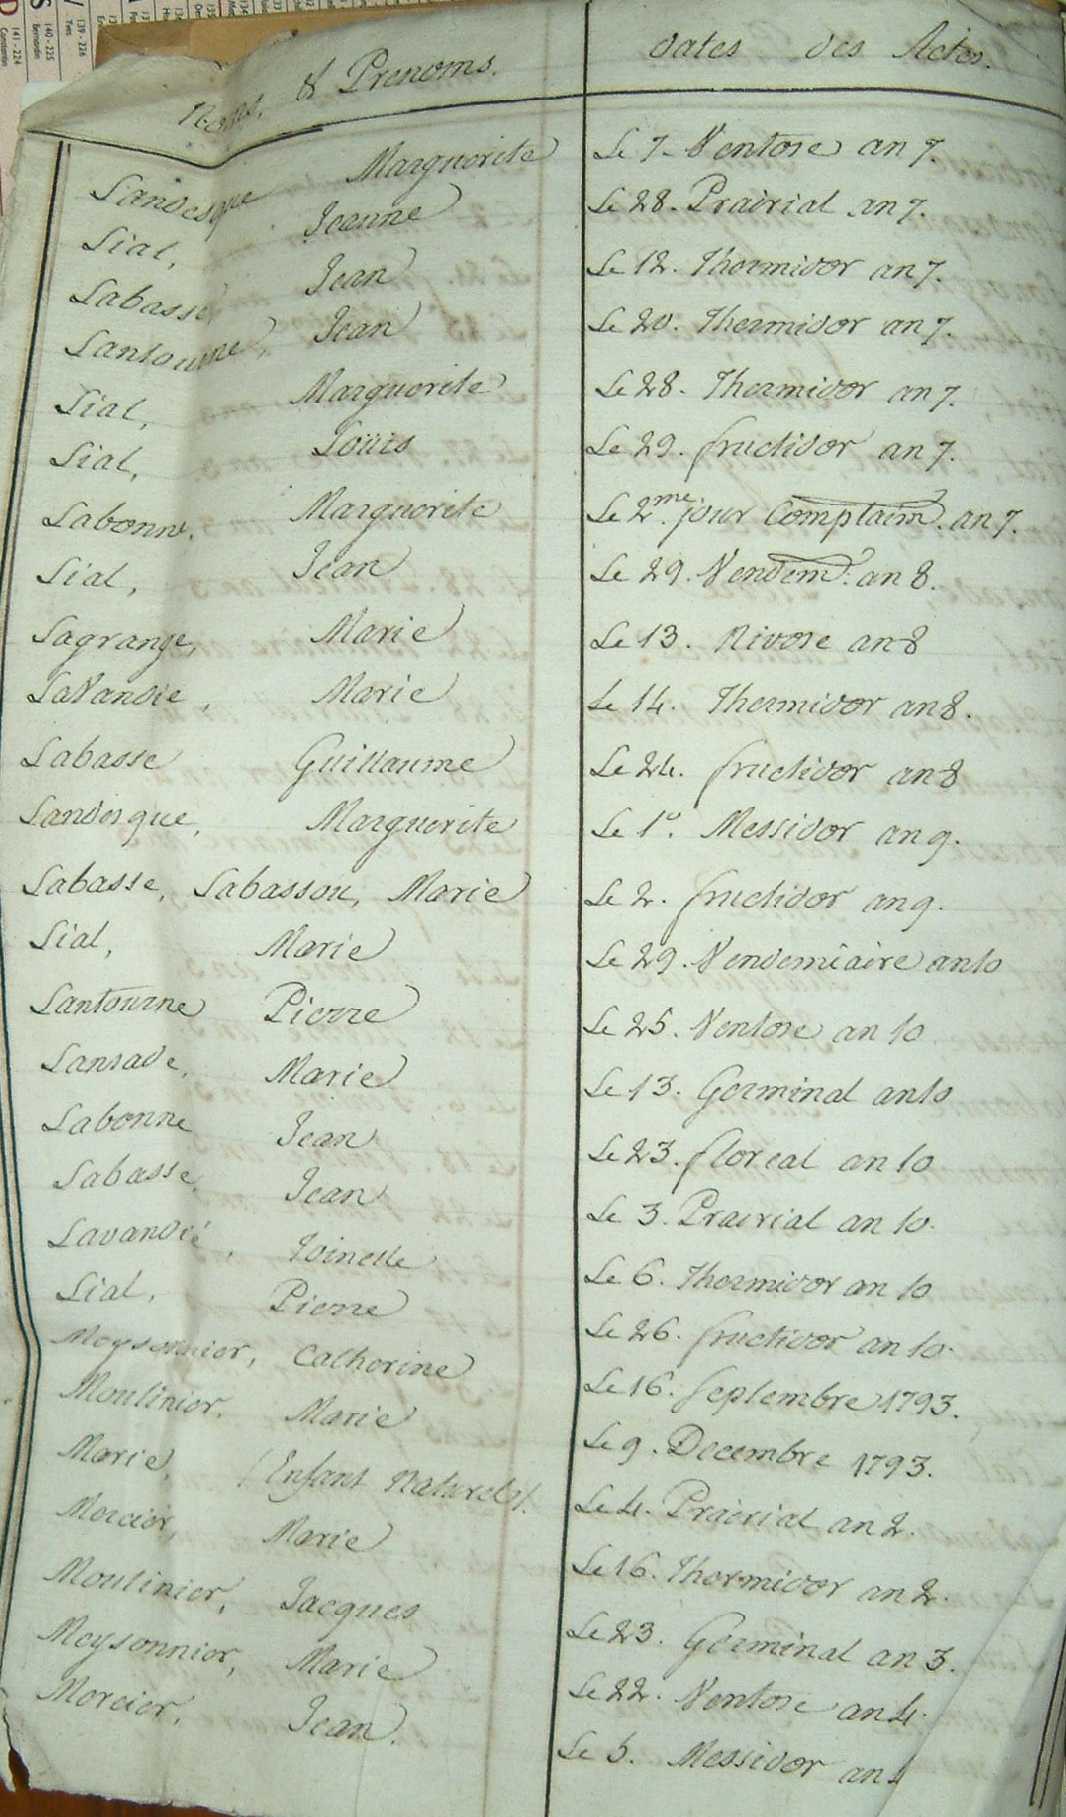 Noms, & Prenoms. dates des Actes.
Landesque Marguerite Le 7. Ventose an 7.
Lial, Jeanne Le 28. Prairial an 7.
Labasse, Jean Le 12. Thermidor an 7.
Lantourne, Jean Le 20. Thermidor an 7.
Lial, Marguerite Le 28. Thermidor an 7.
Lial, Louis Le 29. fructidor an 7.
Labonne. Marguerite Le 2.me jour Complaim. an 7.
Lial, Jean Le 29. Vendem. an 8.
Lagrange, Marie Le 13. Nivose an 8
LaVandie, Marie Le 14. Thermidor an 8.
Labasse Guillaume Le 24. fructidor an 8
Landesque, Marguerite Le 1o. Messidor an 9.
Labasse, Labassou, Marie Le 2. fructidor an 9.
Lial, Marie Le 29. Vendemiaire an 10
Lantourne Pierre Le 25. Ventose an 10
Lansade, Marie Le 13. Germinal an 10
Labonne Jean Le 23. floreal an 10
Labasse, Jean Le 3. Prairial an 10.
Lavandié, Toinette Le 6. Thermidor an 10
Lial, Pierre Le 26. fructidor an 10.
Meysonnier, Catherine Le 16. Septembre 1793.
Moulinier. Marie Le 9. Decembre 1793.
Marie, (Enfant Naturel). Le 4. Prairial an 2.
Mercier, Marie Le 16. Thermidor an 2.
Moulinier, Jacques Le 23. Germinal an 3.
Meysonnier, Marie Le 22. Ventose an 4.
Mercier, Jean. Le 5. Messidor an 4